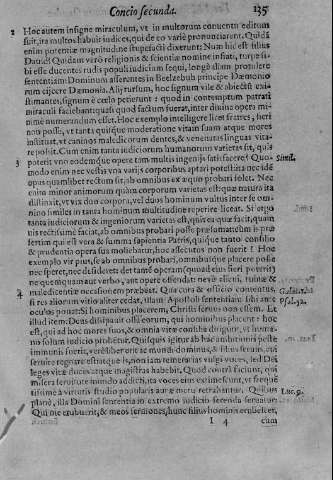 Concio secunda. 135
2 Hoc autem insigne miraculum, vt in multorum conuentu editum
fuit, ita multos habuit iudices, qui de eo variè pronunciarent. Quidā
enim potentiæ magnitudine stupefacti dixerunt: Num hic est filius
Dauid? Quidam verò religionis & scientiæ nomine inflati, turpe si-
bi esse ducentes rudis populi iudicium sequi, longè aliam protulere
sententiam: Dominum asserentes in Beelzebub principe Dæmonio
rum eijcere Dæmonia. Alij rursum, hoc signum vile & abiectū exi-
stimantes, signum è cœlo petierunt: quod in contemptum patrati
miraculi faciebant: quasi quod factum fuerat, inter diuina opera mi-
nimè numerandum esset. Hoc exemplo intelligere licet fratres, fieri
non posse, vt tanta quisque moderatione vitam suam atque mores
instituat, vt omnino maledicorum dentes, & venenatas linguas vita-
re possit. Cum enim tanta iudiciorum humanorum varietas sit, quis
3 poterit vno eodemque opere tam multis ingenijs satisfacere? Quo- Simil.
modo enim nec vestis vna varijs corporibus aptari potest: ita nec id
opus quamlibet rectum sit, ab omnibus ex æquo probari solet. Nec
enim minor animorum quàm corporum varietas est: quæ natura ita
distinxit, vt vix duo corpora, vel duos hominum vultus inter se om-
nino similes in tanta hominum multitudine reperire liceat. Si ergo
tanta iudiciorum & ingeniorum varietas est, quis ea quæ facit, quam-
uis rectissimè faciat, ab omnibus probari posse præsumat: cum is præ
sertim qui est vera & summa sapientia Patris, quique tanto consilio
& prudentia opera sua moliebatur, hoc assecutus non fuerit? Hoc
exemplo vir pius, se ab omnibus probari, omnibusque placere posse
nec speret, nec desideret: det tamē operam (quoad eius fieri poterit)
ne quemquam aut verbo, aut opere offendat: nevè ellicui, ruinæ &
4 maledicentiæ occasionem præbeat. Qua cura & officio conuentus, Galat. 1.
si res aliorum vitio aliter cedat, illam Apostoli sententiam sibi ante Psal. 52.
oculos ponat: Si hominibus placerem, Christi seruus non essem. Et
illud item: Deus dissipauit ossa eorum, qui hominibus placent: hoc
est, qui ad hoc mores suos, & omnia vitæ consilia dirigunt, vt huma-
no solum iudicio probentur. Quisquis igitur ab hac ambitionis peste
immunis fuerit, verè liber erit: ac mundi dominus, & liber seruus ex
seruire regnare est: itaque is, non iam temerarias vulgi voces, sed Dei
leges vitæ duces atque magistras habebit. Quod contrà faciunt, qui
misera seruitute mundo addicti, ita voces eius extimescunt, vt frequē
tissimè à virtutis studio popularis auræ metu retrahantur. Quibus Luc. 9.
planè, illa Domini sententia in extremo iudicio ferenda seruatur:
Qui me erubuerit, & meos sermones, hunc filius hominis erubescet,
I 4 cum